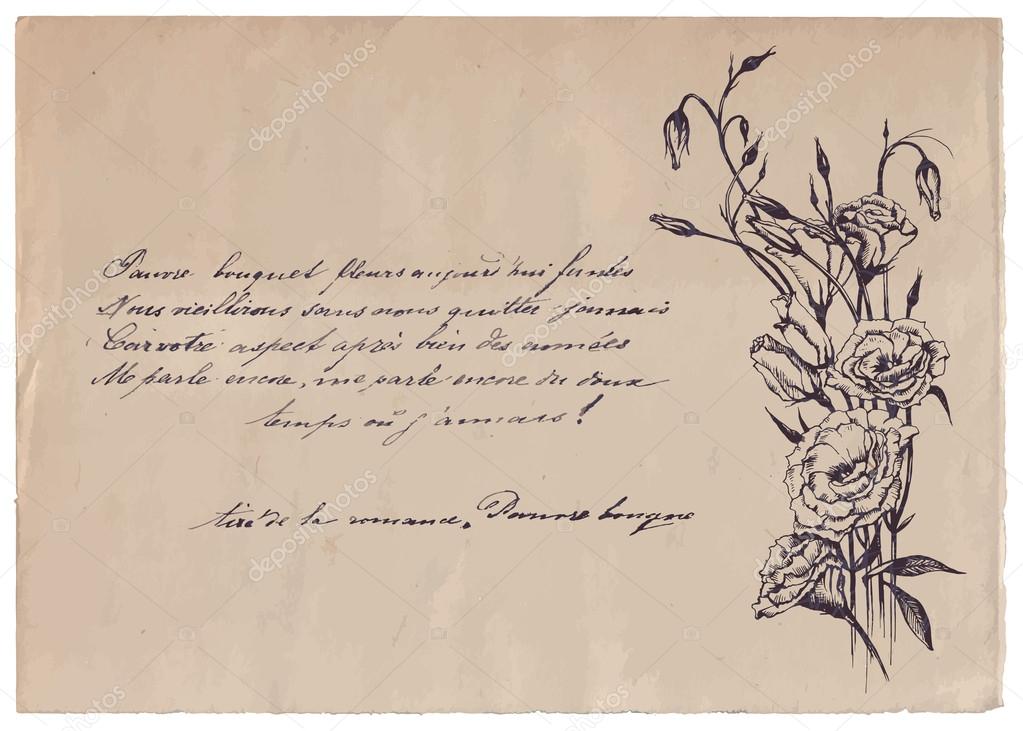 Pauvre bouquet fleurs aujourd'hui fanées
Nous vieillirons sans nous quitter jamais
Car votre aspect après bien des années
Me parle encore, me parle encore du doux
temps où j'aimais!
tiré de la romance. Pauvre bouque
depositphotos
depositphotos
depositphotos
depositphotos
depositphotos
depositphotos
depositphotos
depositphotos